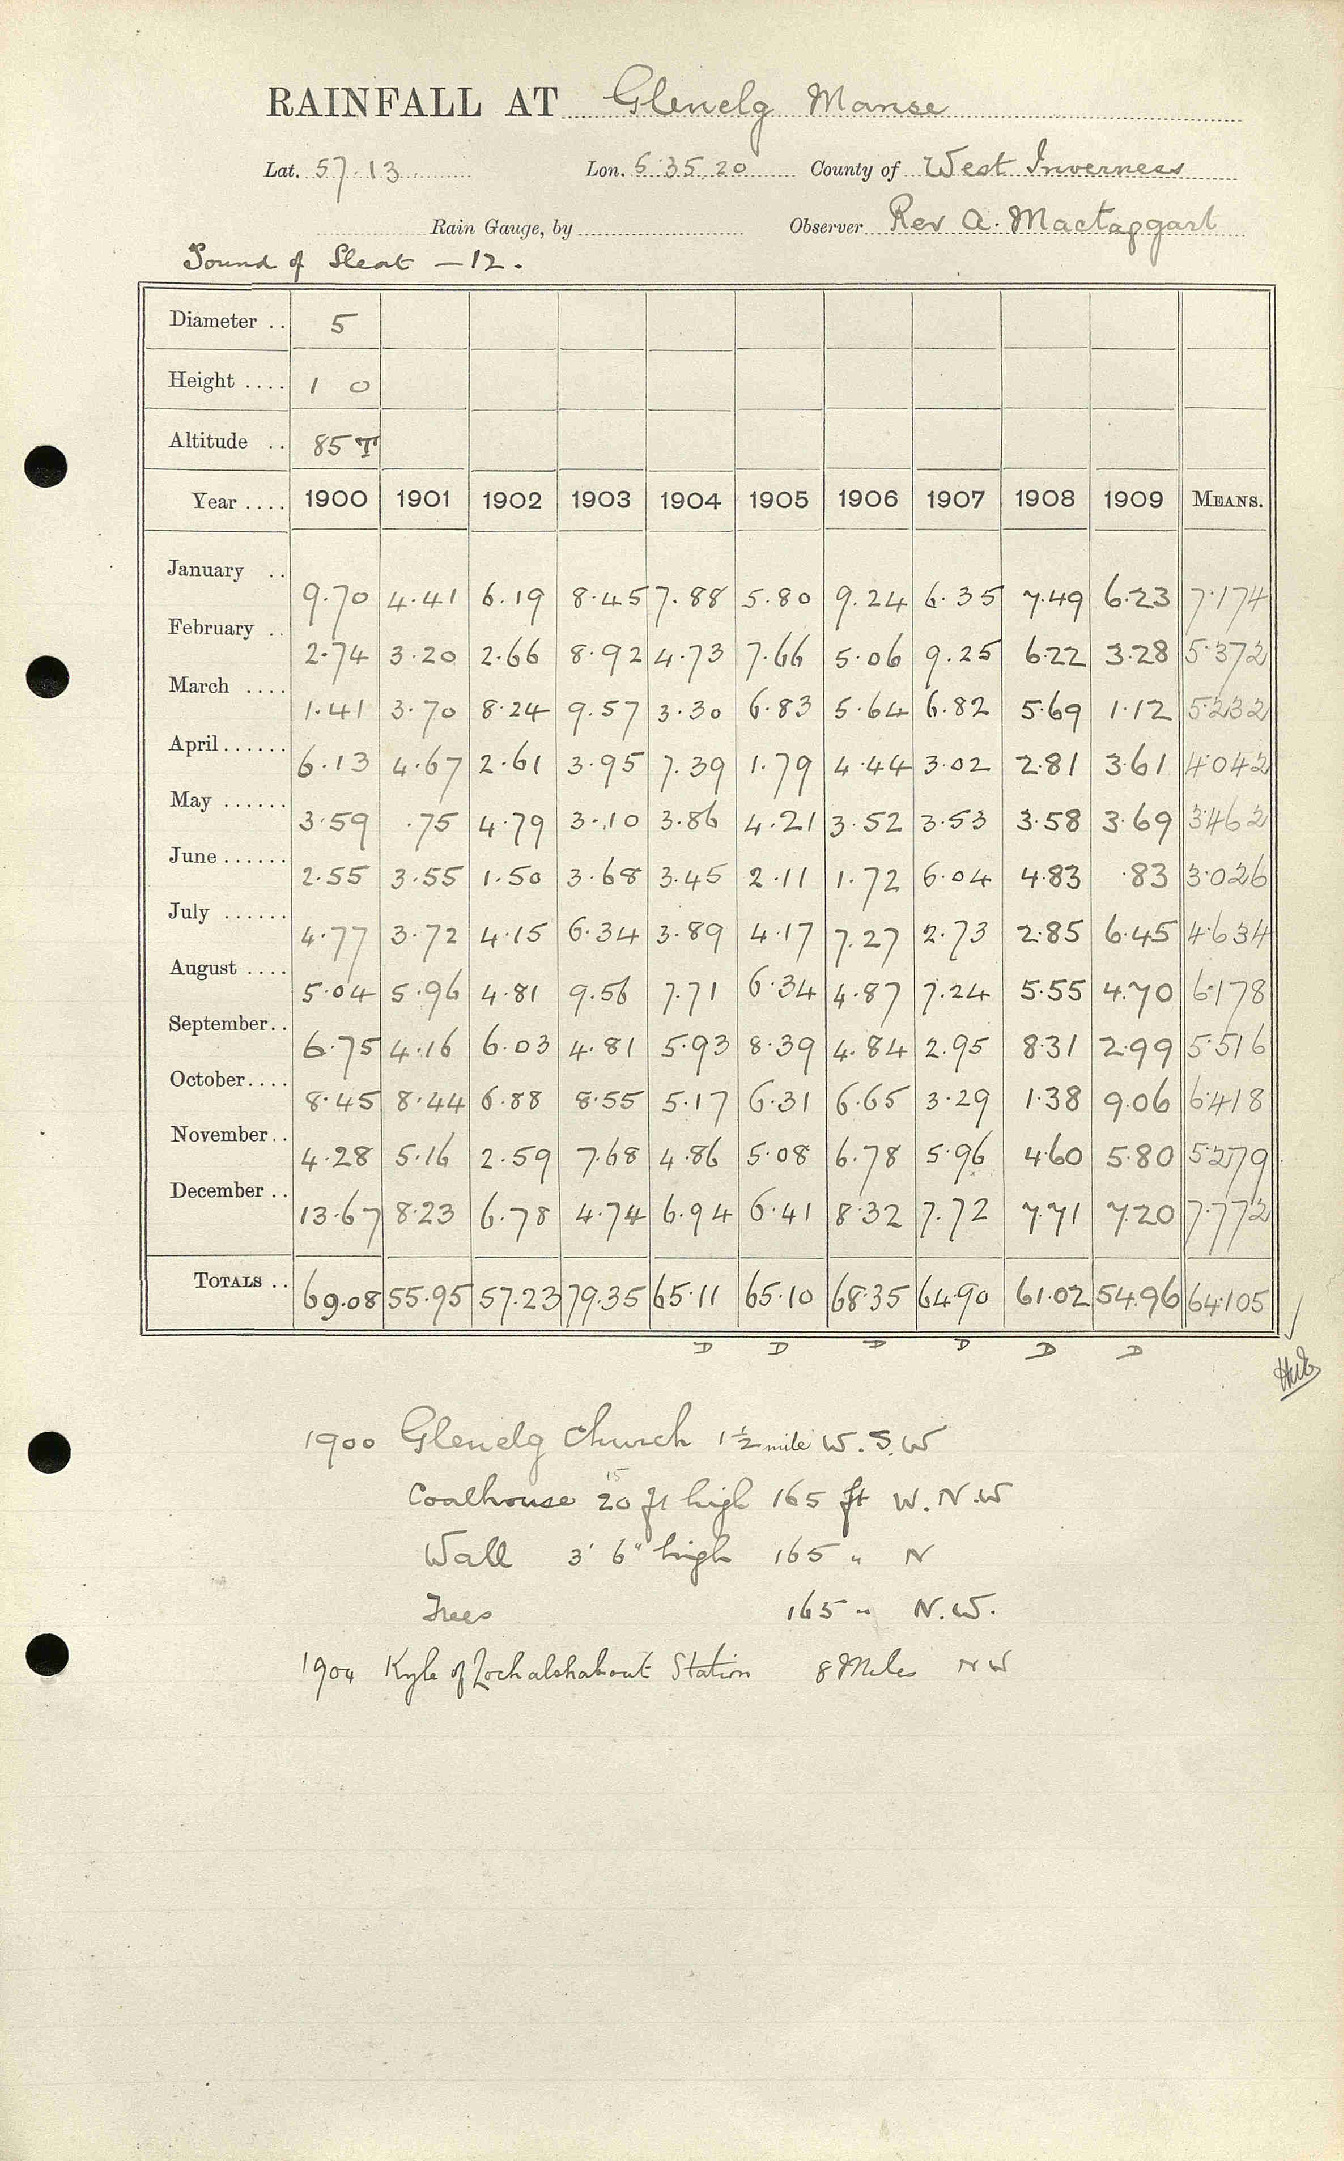 RAINFALL AT Glenelg Manse
Lat. 57.13 Lon. 5.35.20 County of West Inverness
Rain Gauge, by Observer Rev A. Mactapgart
Sound of Sleat — 12.
Diameter .. 5
Height .... 1 0
Altitude .. 85 T
Year .... 1900 1901 1902 1903 1904 1905 1906 1907 1908 1909 MEANS.
January .. 9.70 4.41 6.19 8.45 7.88 5.80 9.24 6.35 7.49 6.23 7.174
February .. 2.74 3.20 2.66 8.92 4.73 7.66 5.06 9.25 6.22 3.28 5.372
March .... 1.41 3.70 8.24 9.57 3.30 6.83 5.64 6.82 5.69 1.12 5.232
April ...... 6.13 4.67 2.61 3.95 7.39 1.79 4.44 3.02 2.81 3.61 4.042
May ...... 3.59 .75 4.79 3.10 3.86 4.21 3.52 3.53 3.58 3.69 3.462
June ...... 2.55 3.55 1.50 3.68 3.45 2.11 1.72 6.04 4.83 .83 3.026
July ...... 4.77 3.72 4.15 6.34 3.89 4.17 7.27 2.73 2.85 6.45 4.634
August .... 5.04 5.96 4.81 9.56 7.71 6.34 4.87 7.24 5.55 4.70 6.178
September .. 6.75 4.16 6.03 4.81 5.93 8.39 4.84 2.95 8.31 2.99 5.516
October .... 8.45 8.44 6.88 8.55 5.17 6.31 6.65 3.29 1.38 9.06 6.418
November .. 4.28 5.16 2.59 7.68 4.86 5.08 6.78 5.96 4.60 5.80 5.279
December .. 13.67 8.23 6.78 4.74 6.94 6.41 8.32 7.72 7.71 7.20 7.772
TOTALS .. 69.08 55.95 57.23 79.35 65.11 65.10 68.35 64.90 61.02 54.96 64.105
D D D D D D
1900 Glenelg Church 1½ mile W.S.W
15
Coalhouse 20 ft high 165 ft W.N.W
Wall 3' 6" high 165 " N
Trees 165 " N.W.
1904 Kyle of Lochalshabout Station 8 Miles NW